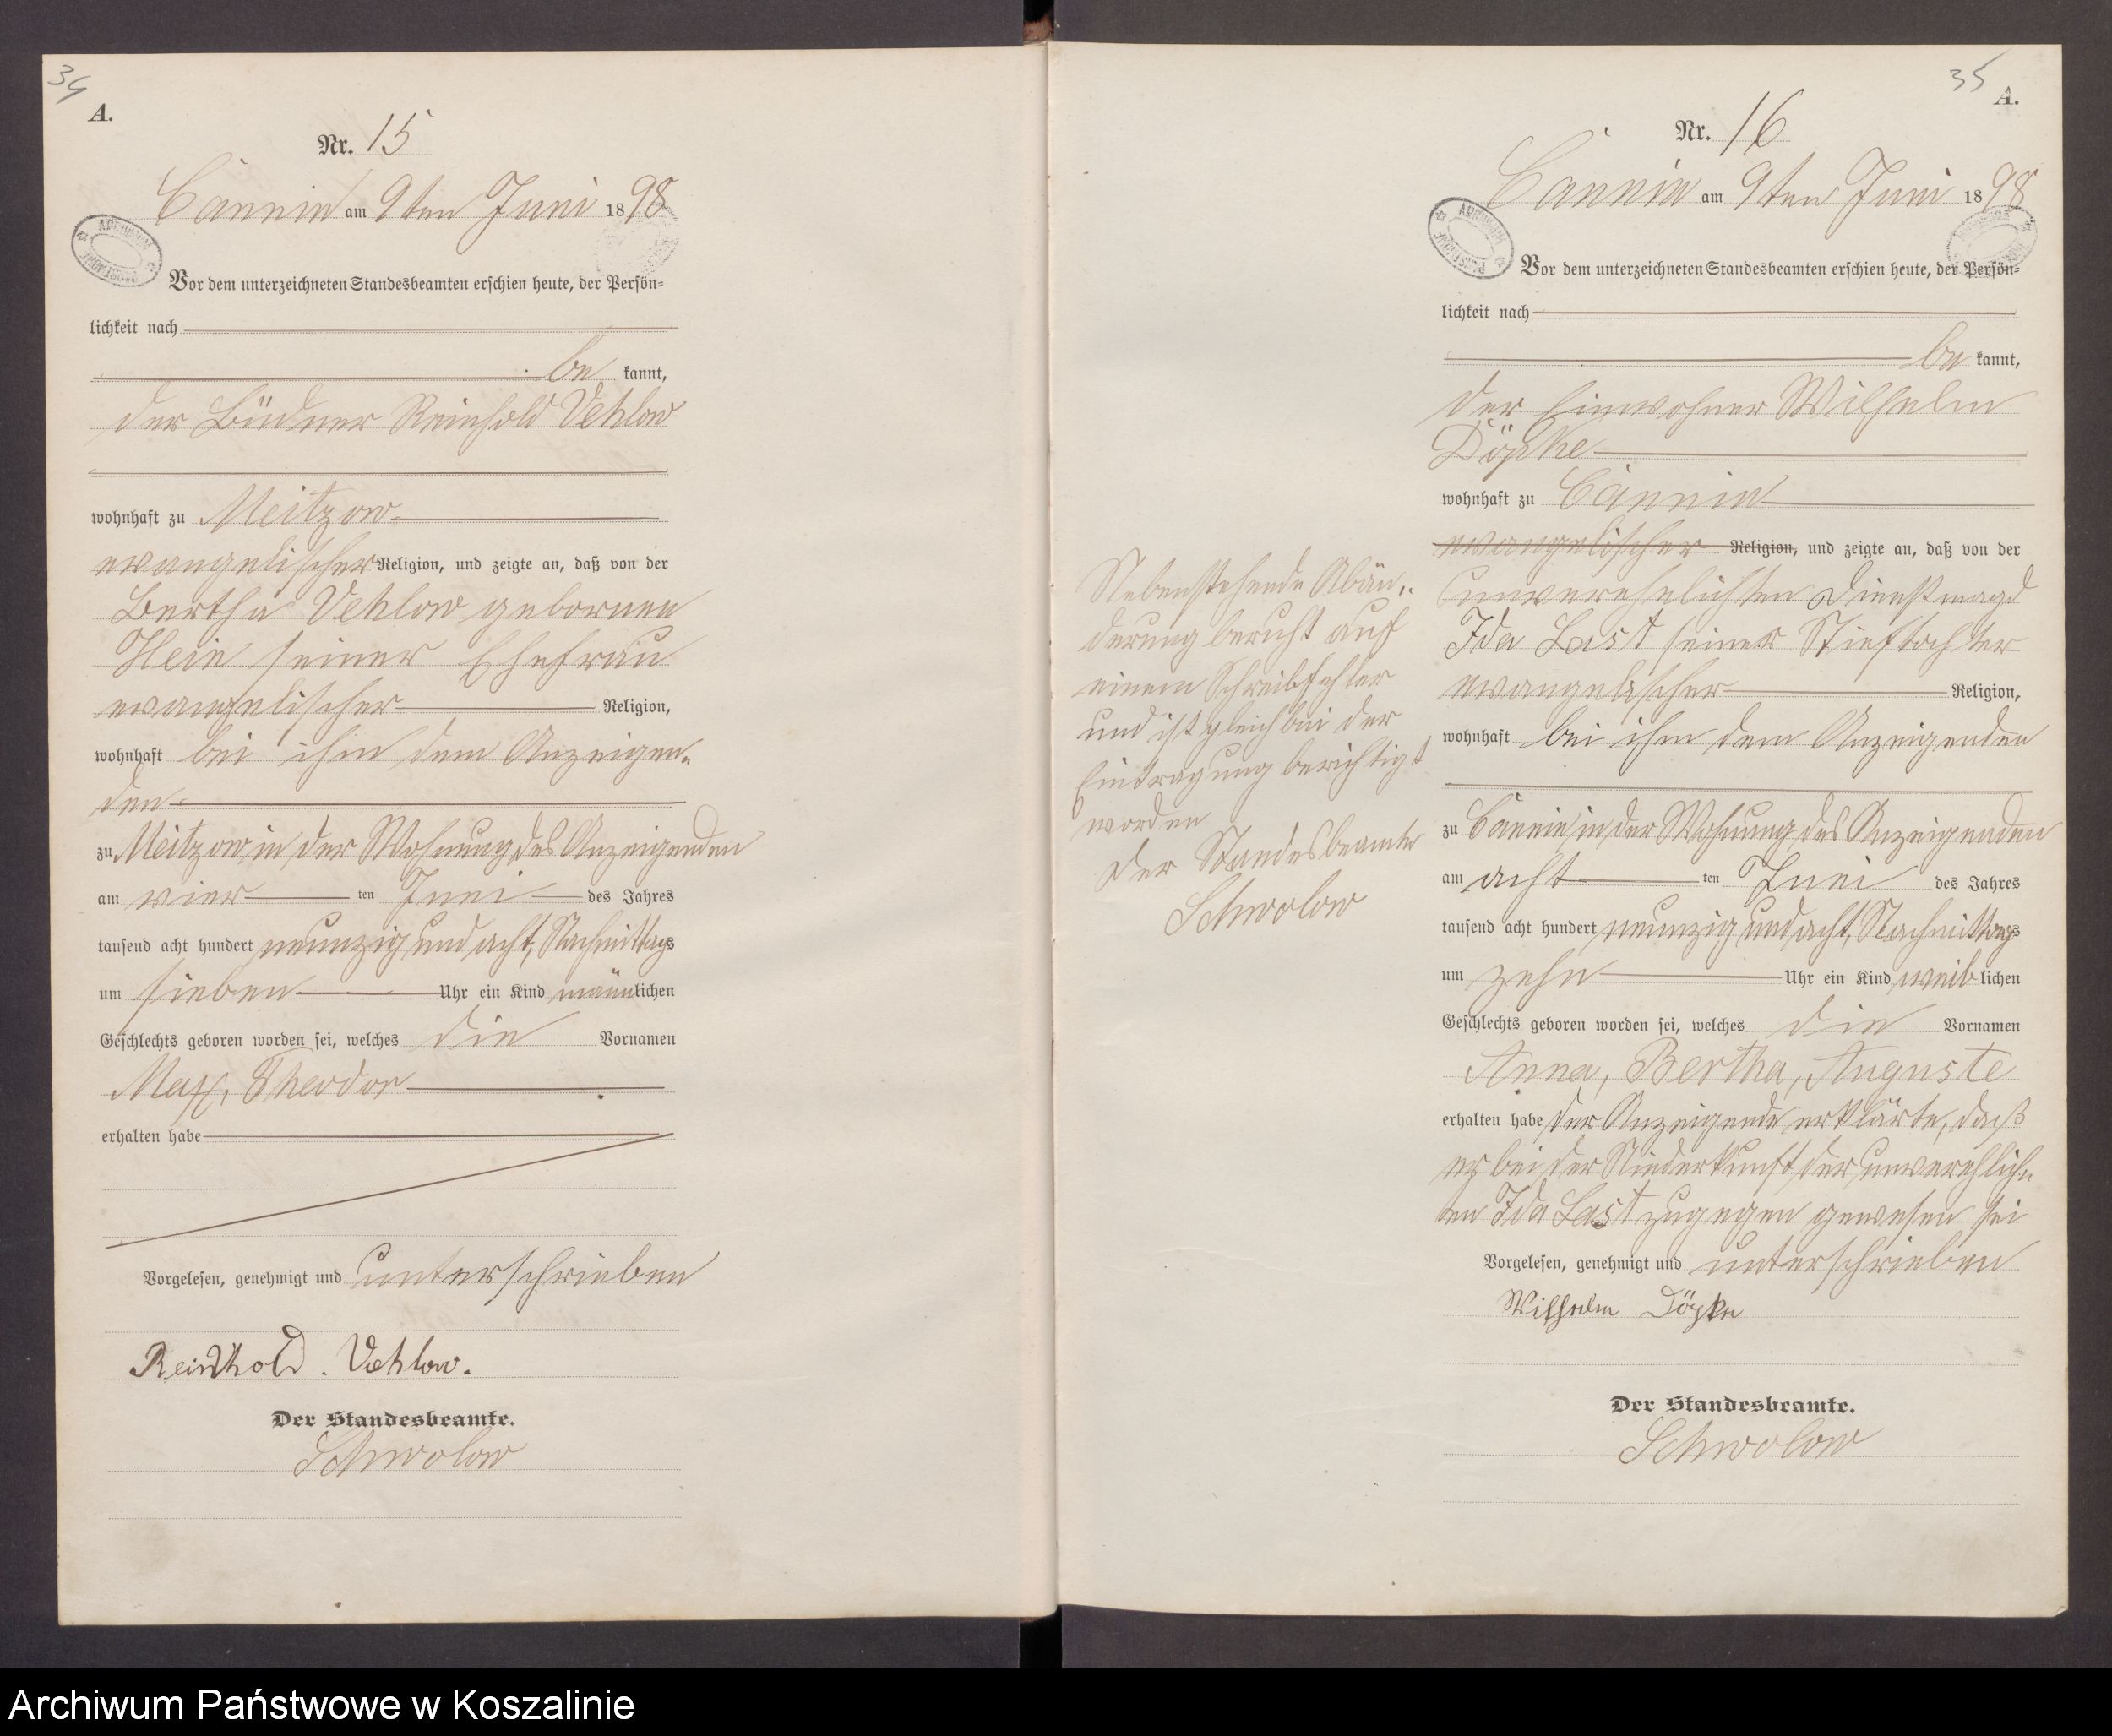 34
A.
Nr. 15
Cannin am 9ten Juni 1898
Vor dem unterzeichneten Standesbeamten erschien heute, der Persön-
lichkeit nach
be kannt,
der Büdner Reinhold Vehlow
wohnhaft zu Meitzow
evangelischer Religion, und zeigte an, daß von der
Bertha Vehlow gebornen
Hein seiner Ehefrau
evangelischer Religion,
wohnhaft bei ihm dem Anzeigen-
den
zu Meitzow in der Wohnung des Anzeigenden
am vier ten Juni des Jahres
tausend acht hundert neunzig und acht, Nachmittags
um sieben Uhr ein Kind männlichen
Geschlechts geboren worden sei, welches die Vornamen
Max, Theodor
erhalten habe
Vorgelesen, genehmigt und unterschrieben
Reinhold. Vehlow.
Der Standesbeamte.
Schwolow
35
A.
Nr. 16
Cannin am 9ten Juni 1898
ARCHIWUM
Vor dem unterzeichneten Standesbeamten erschien heute, der Persön-
lichkeit nach
be kannt,
der Einwohner Wilhelm
Döpke
wohnhaft zu Cannin
evangelischer Religion, und zeigte an, daß von der
unverehelichten Dienstmagd
Ida Last seiner Stieftochter
evangelischer Religion,
wohnhaft bei ihm dem Anzeigenden
zu Cannin in der Wohnung des Anzeigenden
am acht ten Juni des Jahres
tausend acht hundert neunzig und acht, Nachmittags
um zehn Uhr ein Kind weiblichen
Geschlechts geboren worden sei, welches die Vornamen
Anna, Bertha, Auguste
erhalten habe der Anzeigende erklärte, daß
er bei der Niederkunft der unverehlich-
ten Ida Last zugegen gewesen sei
Vorgelesen, genehmigt und unterschrieben
Wilhelm Döpke
Der Standesbeamte.
Schwolow
Nebenstehende Abän-
derung beruht auf
einem Schreibfehler
und ist gleich bei der
Eintragung berichtigt
worden
Der Standesbeamte
Schwolow
Archiwum Państwowe w Koszalinie